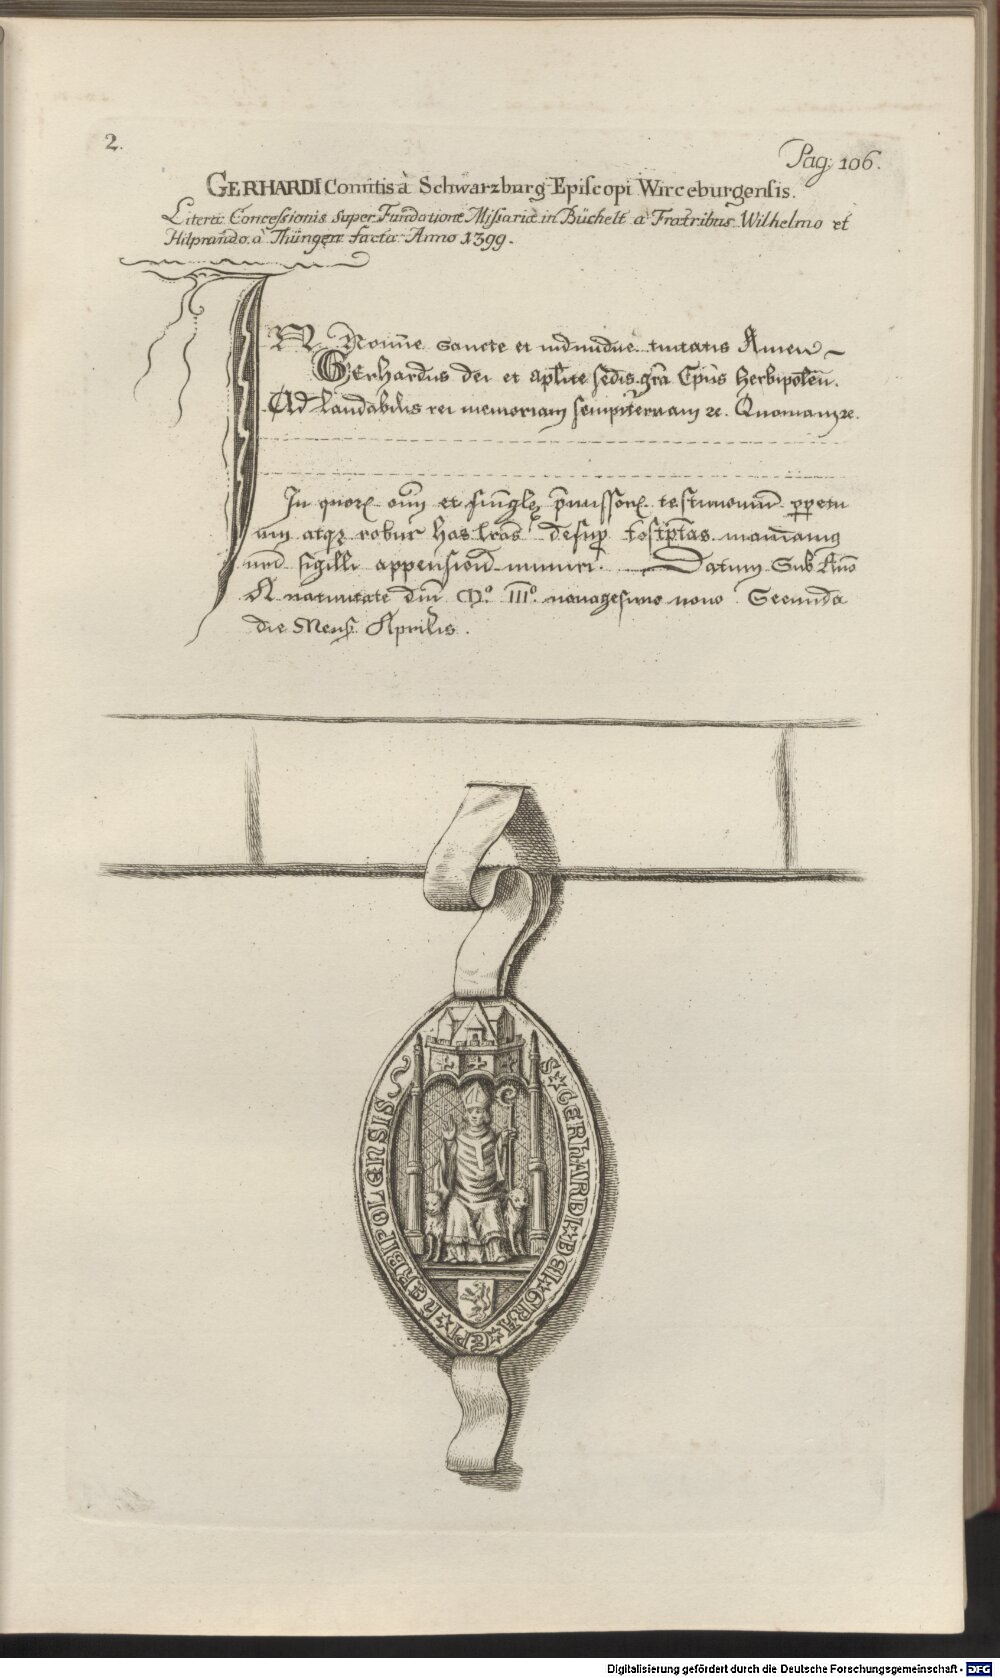 2.
Pag: 106.
GERHARDI Comitis à Schwarzburg Episcopi Wirceburgensis.
Literæ Concessionis super Fundatione Missariæ in Büchelt a Fratribus Wilhelmo et
Hilprando à Thüngen facta Anno 1399.
IN Noie sancte et individue trinitatis Amen
Gerhardus dei et aplice sedis gra Epus herbipoleñ.
Ad laudabilis rei memoriam sempiternam ꝛc. Quoniam ꝛc.
In quoꝝ oim et singloꝝ pmissoꝝ testimonium ppetu
um atqꝫ robur has lras desup
sigilli appensione muniri. Datum Sub Año
A nativitate dni Mº. IIIº. nonagesimo nono Secunda
die Mens Aprilis.
S ☆ GERHARDI ☆ DEI ☆ GRA ☆ EPI ☆ HERBIPOLENSIS
Digitalisierung gefördert durch die Deutsche Forschungsgemeinschaft - DFG